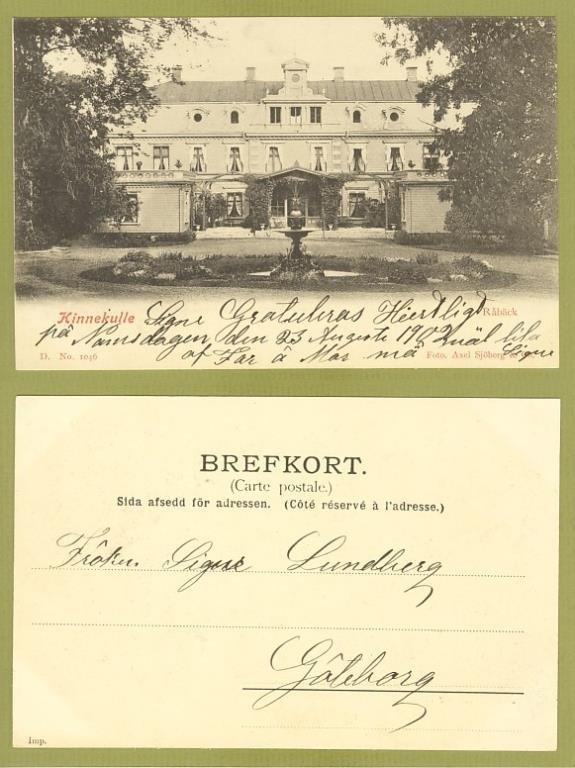 Kinnekulle Signe Gratuleras Hiertligt Råbäck
på Namsdagen den 23 Augusti 1902 mäl lila
D. No. 1046 af Far å Mor må Foto. Axel Sjöberg Signe
BREFKORT.
(Carte postale.)
Sida afsedd för adressen. (Côté réservé à l'adresse.)
Fröken Signe Lundberg
Göteborg
Imp.